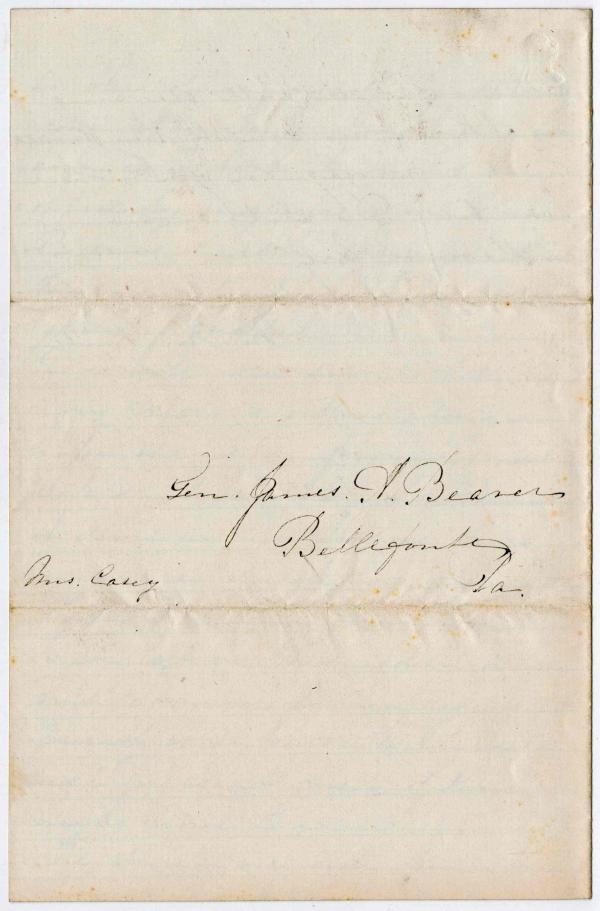 Gen. James. A. Beaver
Bellefonte
Mrs. Casey
Pa.